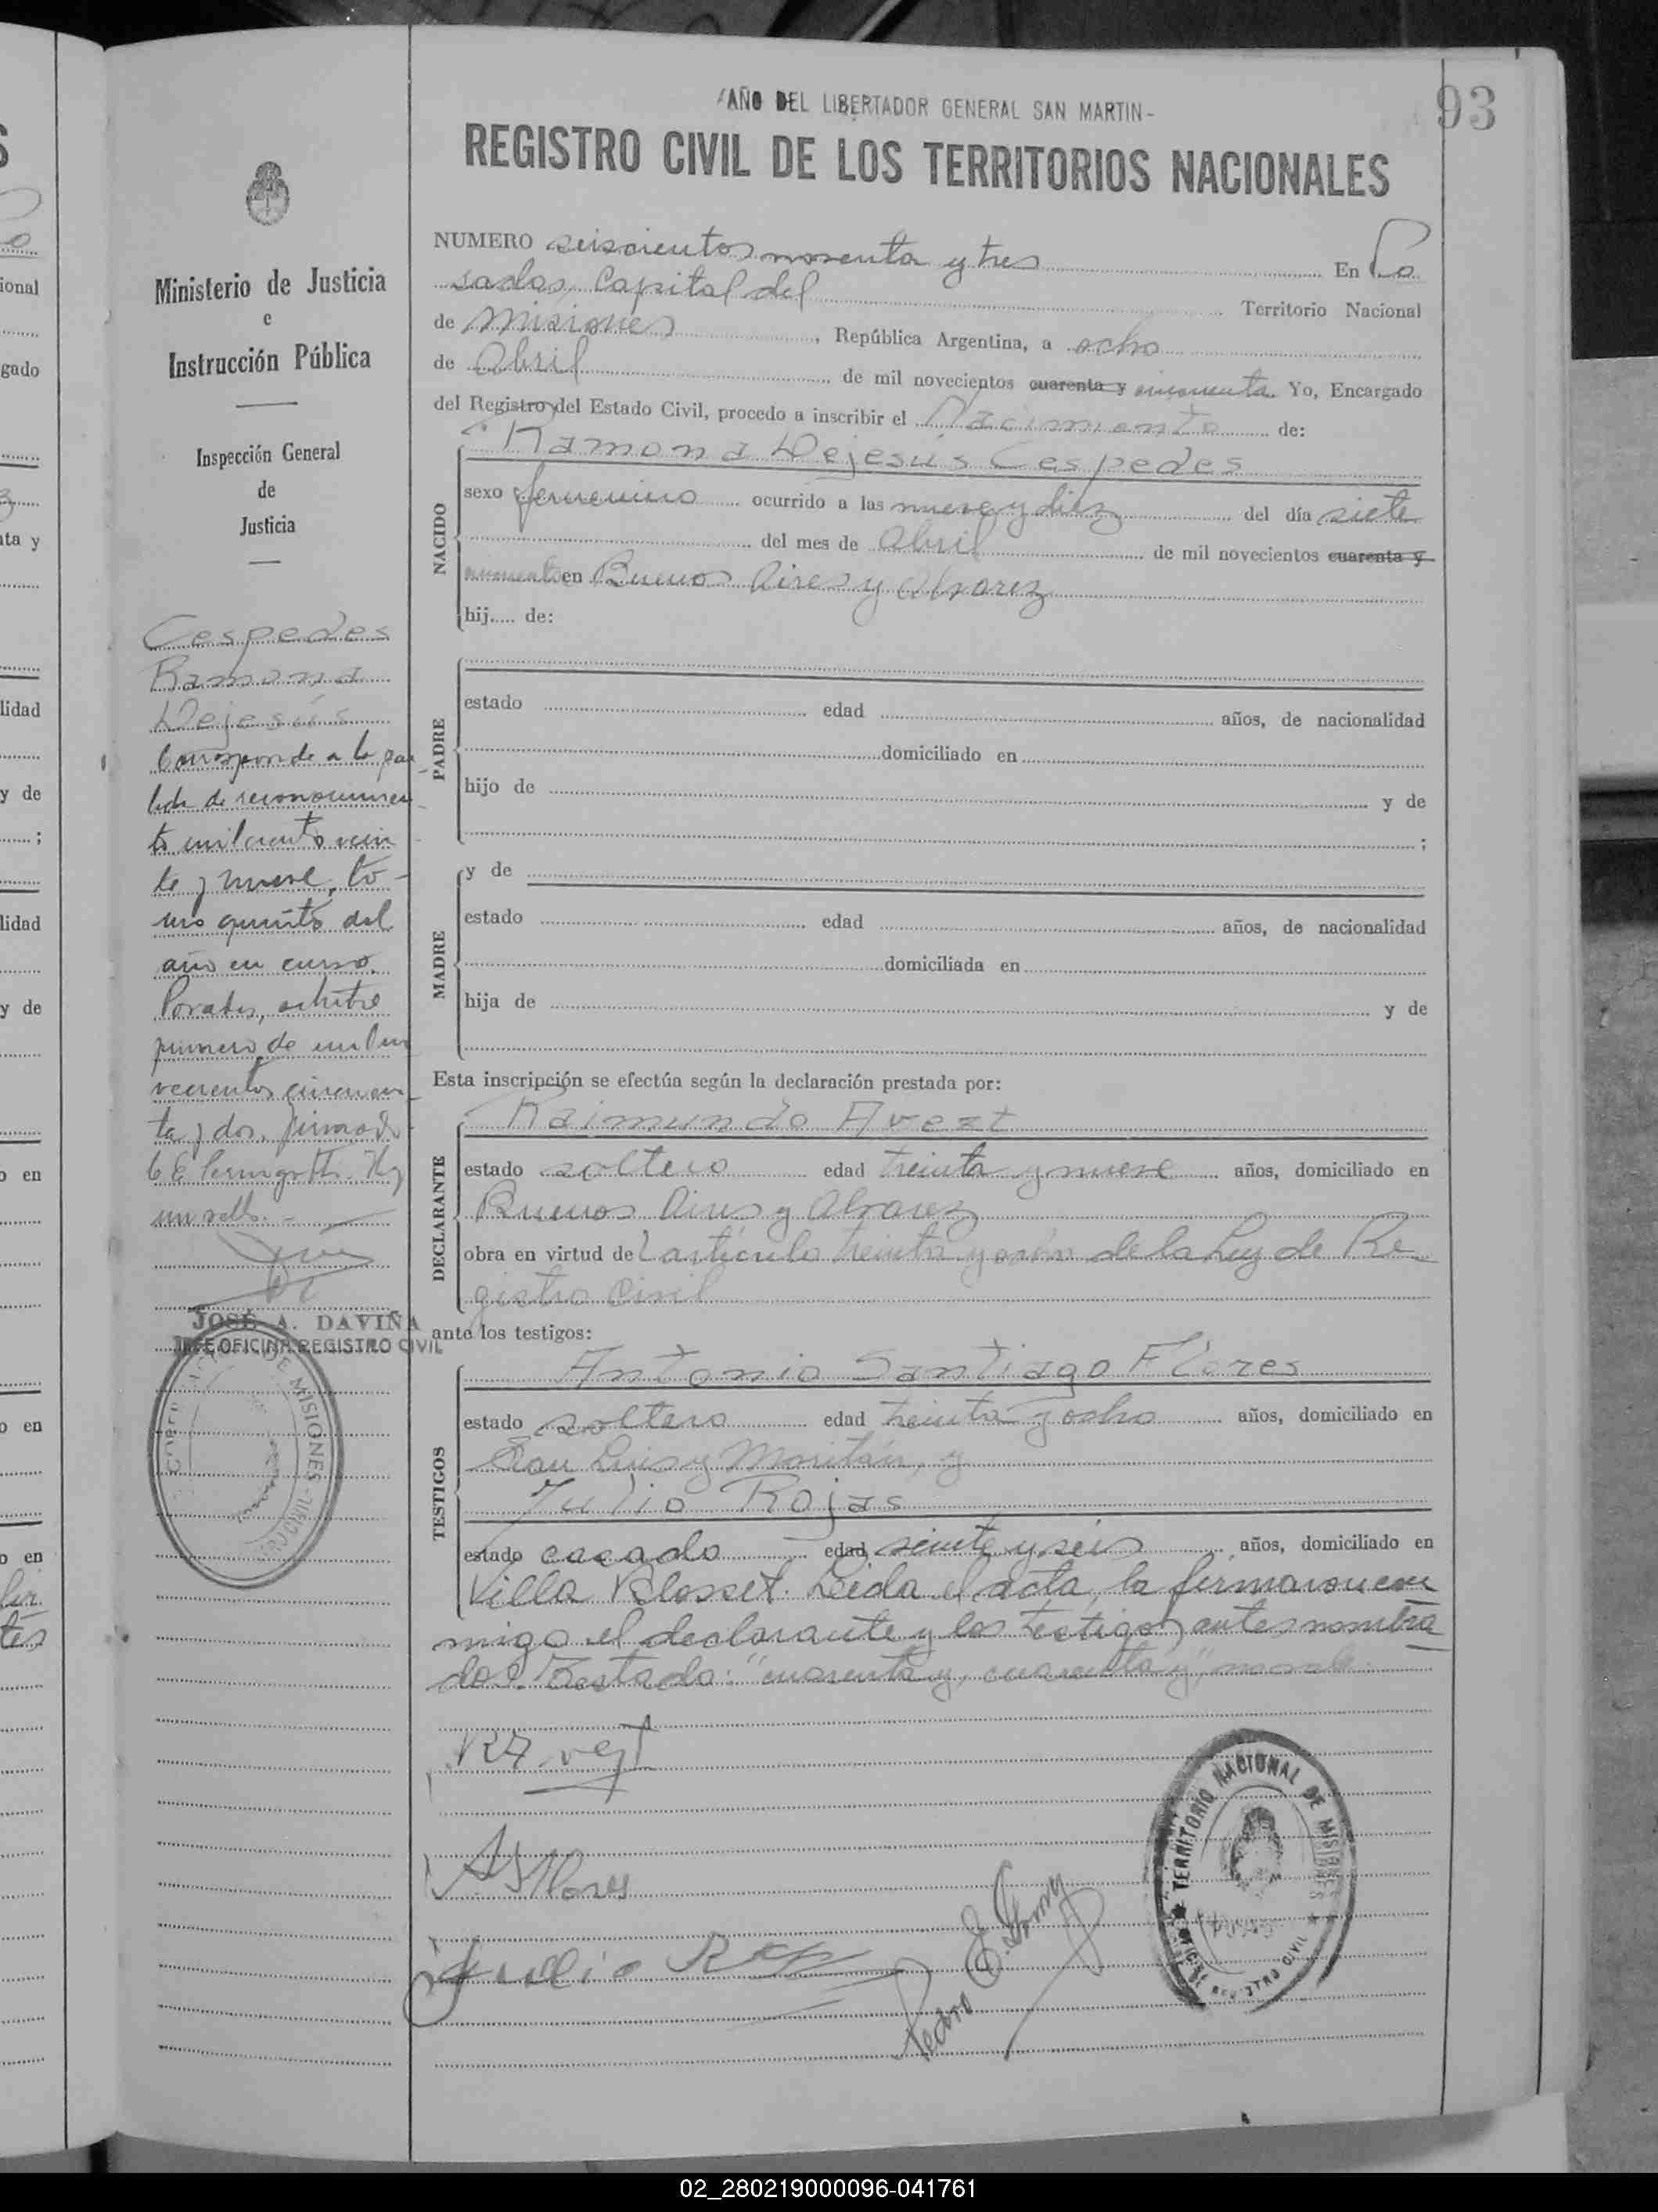 93
"AÑO DEL LIBERTADOR GENERAL SAN MARTIN-
REGISTRO CIVIL DE LOS TERRITORIOS NACIONALES
Ministerio de Justicia
e
Instrucción Pública
Inspección General
de
Justicia
Cespedes
Ramona
Dejesús
Corresponde a la par
tida de reconocimien
to mil ciento vein
te y nueve, to-
mo quinto del
año en curso.
Posadas, octubre
primero de mil no
vecientos cincuen
ta y dos. firmado
C E Hay
un sello.-
JOSÉ A. DAVIÑA
JEFE OFICINA REGISTRO CIVIL
NUMERO seiscientos noventa y tres En Po
sadas, Capital del Territorio Nacional
de Misiones, República Argentina, a ocho
de Abril de mil novecientos cuarenta y cincuenta. Yo, Encargado
del Registro del Estado Civil, procedo a inscribir el Nacimiento de:
NACIDO
Ramona Dejesús Cespedes
sexo femenino ocurrido a las nueve y diez del día siete
del mes de Abril de mil novecientos cuarenta y
cincuenta en Buenos Aires y Alvarez
hij..... de:
PADRE
estado edad años, de nacionalidad
domiciliado en
hijo de y de
;
MADRE
y de
estado edad años, de nacionalidad
domiciliada en
hija de y de
Esta inscripción se efectúa según la declaración prestada por:
DECLARANTE
Raimundo Avezt
estado soltero edad treinta y nueve años, domiciliado en
Buenos Aires y Alvarez
obra en virtud del artículo treinta y ocho de la Ley de Re
gistro Civil
ante los testigos:
TESTIGOS
Antonio Santiago Flores
estado soltero edad treinta y ocho años, domiciliado en
San Luis y Moritán, y
Julio Rojas
estado casado edad veinte y seis años, domiciliado en
Villa Blosset. Leida el acta, la firmaron con
migo el declarante y los testigos antes nombra
dos. Testado: "cuarenta y, cuarenta y", no vale.
A S Flores
Julio Rojas
Pedro E.
TERRITORIO NACIONAL DE MISIONES
OFICINA REGISTRO CIVIL
02_280219000096-041761